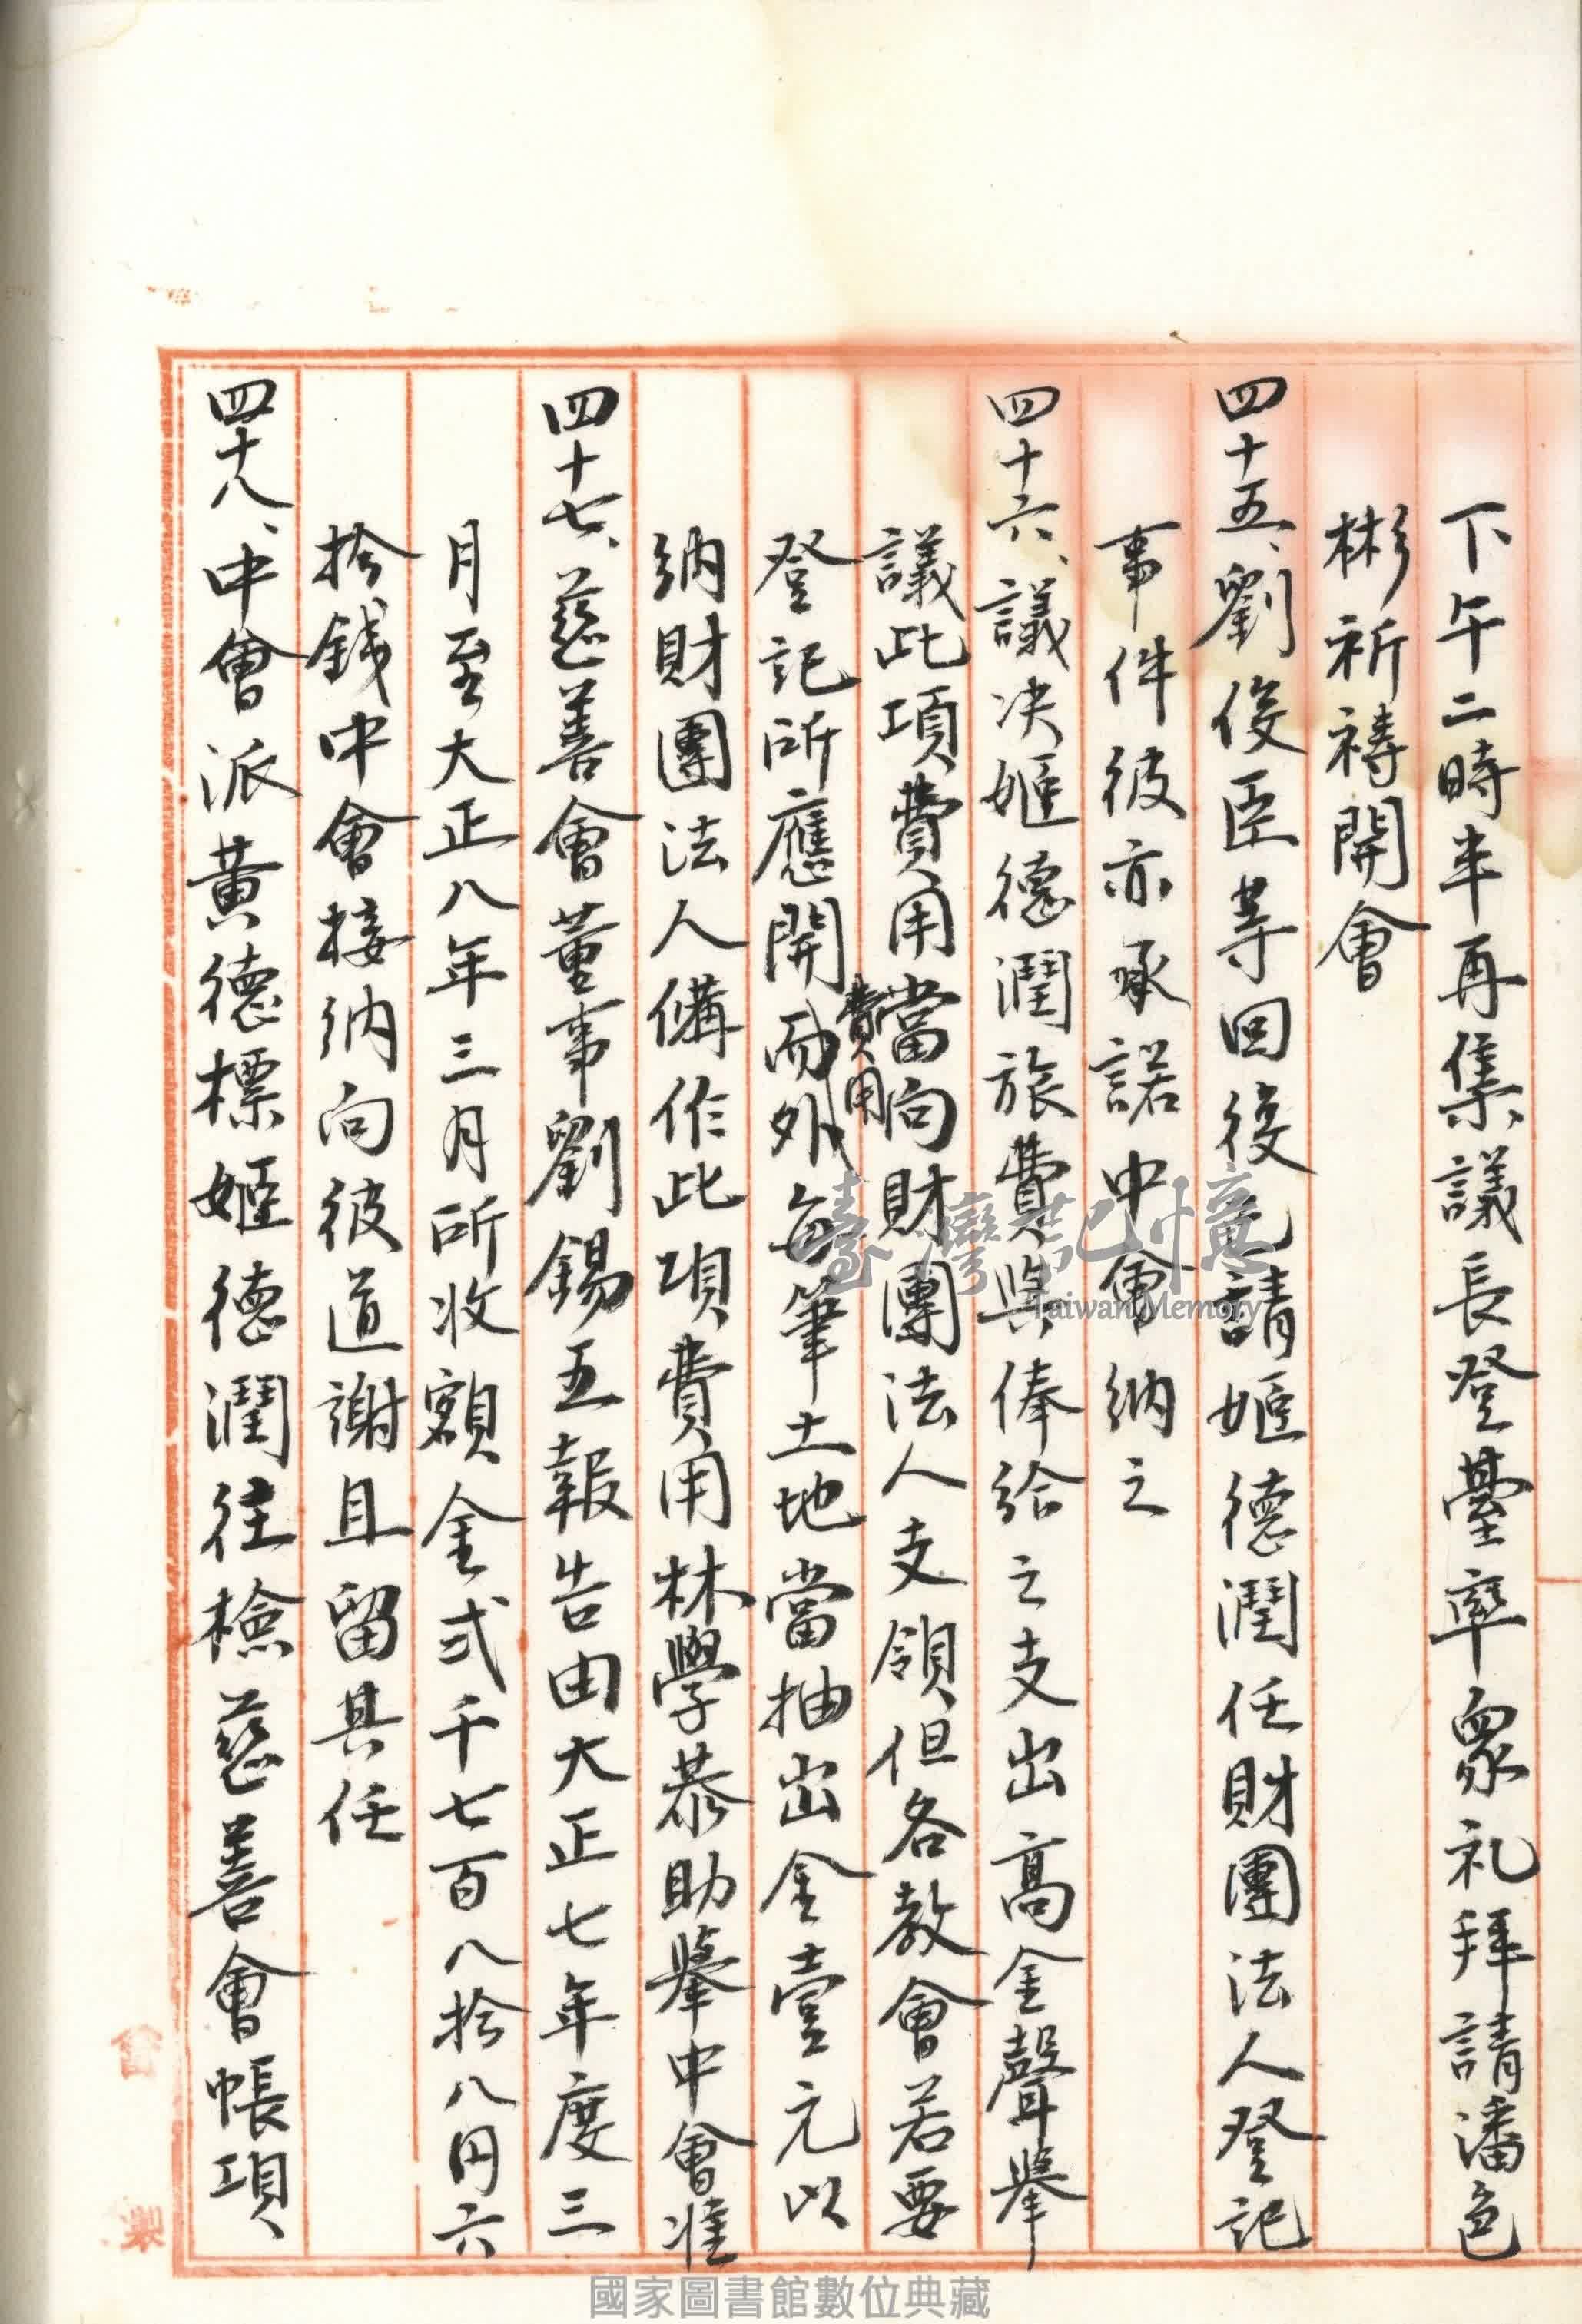 下午二時半再集議長登臺率衆礼拜請潘色
彬祈禱開會
四十五、劉俊臣等回後請姬德潤任財團法人登記
事件彼亦承諾中會納之
四十六、議决姬德潤旅費與俸給之支出高金聲舉
議此項費用當向財團法人支領但各教會若要
登記所應開費用而外每筆土地當抽出金壹元以
納財團法人備作此項費用林學恭助舉中會准
四十七、慈善會董事劉錫五報告由大正七年度三
月至大正八年三月所收額金弍千七百八拾八円六
拾錢中會接納向彼道謝且留其任
四十八、中會派黃德標姬德潤往檢慈善會帳項
臺灣記憶
Taiwan Memory
國家圖書館數位典藏